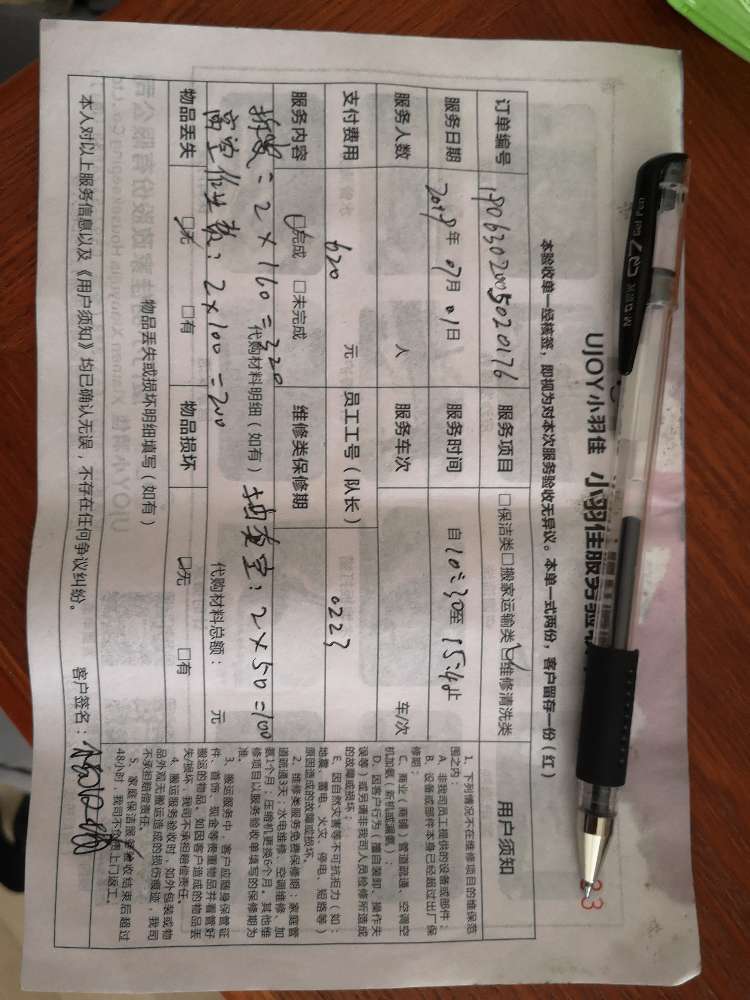 UJOY小羽佳 小羽佳服务验
本验收单一经核签，即视为对本次服务验收无异议。本单一式两份，客户留存一份（红）
订单编号 1906302005020176 服务项目 □保洁类□搬家运输类☑维修清洗类
服务日期 2019年07月01日 服务时间 自10:30至15:40止
服务人数 人 服务车次 车/次
支付费用 620 元 员工工号（队长） 0223
服务内容 ☑完成 □未完成 维修类保修期
代购材料明细（如有） 代购材料总额： 元
拆装：2×160=320 抽真空：2×50=100
高空作业费：2×100=200
物品丢失 ☑无 □有 物品损坏 ☑无 □有
物品丢失或损坏明细填写（如有）
本人对以上服务信息以及《用户须知》均已确认无误，不存在任何争议纠纷。 客户签名：
用户须知
1、下列情况不在维修项目的维保范
围之内：
A、非我司员工提供的设备或部件；
B、设备或部件本身已经超过出厂保
修期；
C、商业（商铺）管道疏通、空调空
机加氨（新机或漏氨）；
D、因客户行为（擅自装卸、操作失
误等）或另遭非我司人员检修所造成
的故障或损坏；
E、因自然灾害等不可抗拒力（如：
地震、雷电、火灾、停电、短路等）
原因造成的故障或损坏。
2、维修类服务免费保修期：家庭管
道疏通3天；水电维修、空调维修、加
氨1个月；压缩机更换6个月；其他维
修项目以服务验收单填写的保修期为
准。
3、搬运服务中，客户应随身保管证
件、首饰、现金等贵重物品并看管好
搬运的物品。如因客户造成的物品丢
失/损坏，我司不承担赔偿责任。
4、搬运服务验收时，如外包装或物
品外观无搬运造成的损伤痕迹，我司
不承担赔偿责任。
5、家庭保洁服务验收结束后超过
48小时，我司不负责上门返工。
M&G 晨光 Q7 Gel Pen